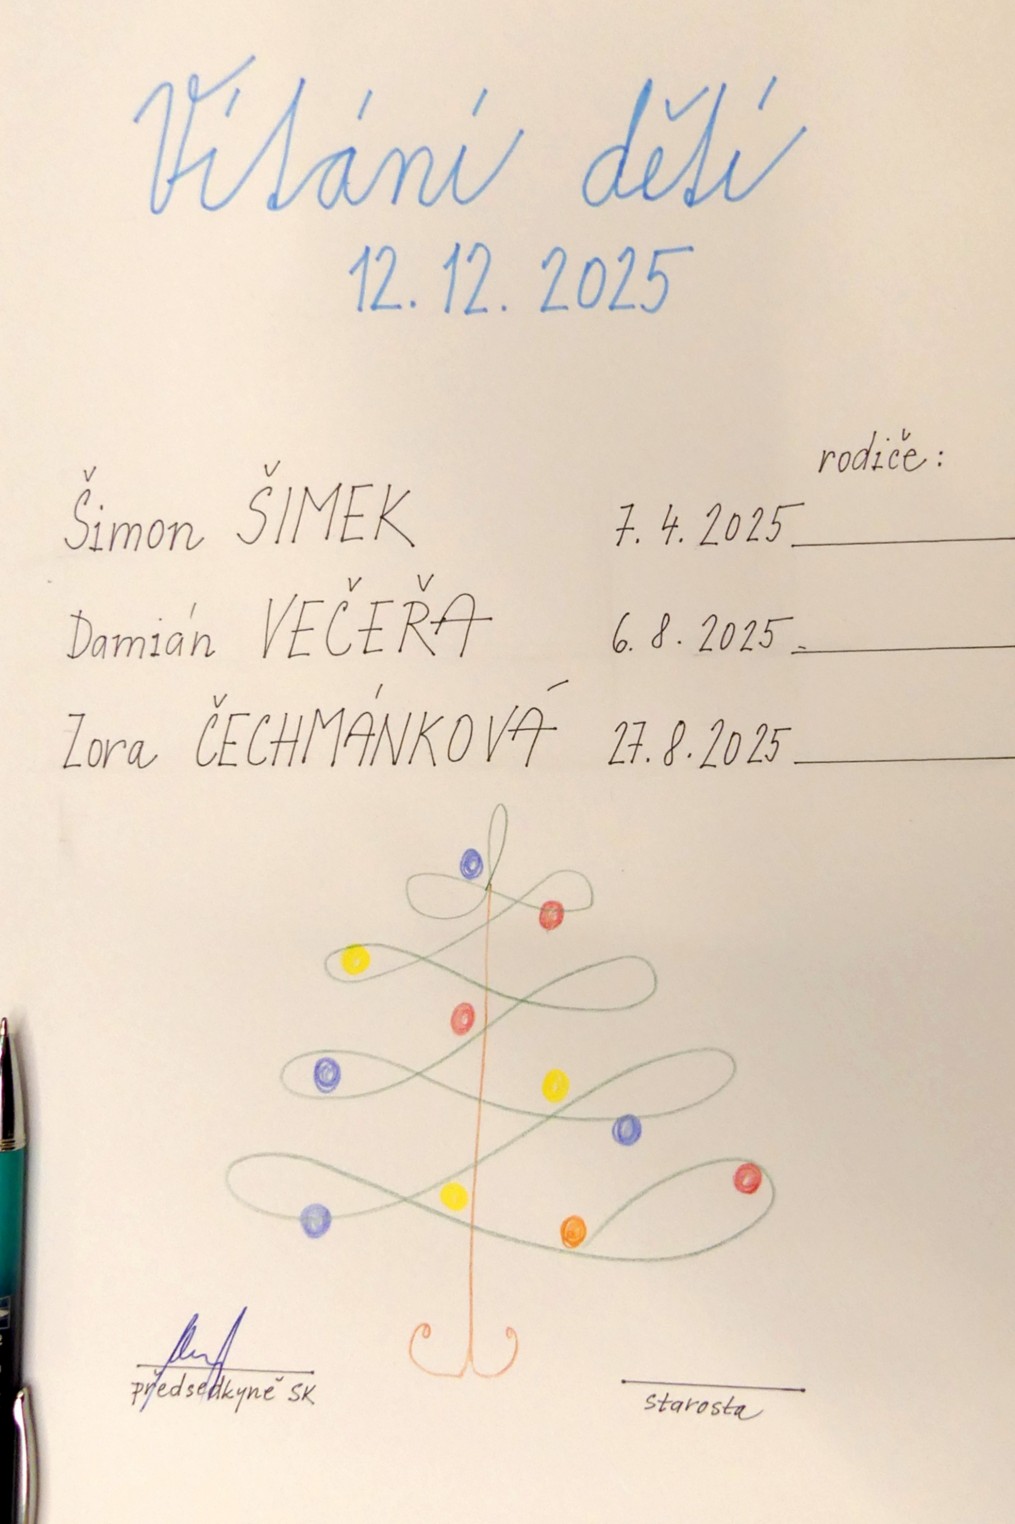 Vítání dětí
12. 12. 2025
rodiče:
Šimon ŠIMEK 7. 4. 2025
Damián VEČEŘA 6. 8. 2025
Zora ČECHMÁNKOVÁ 27. 8. 2025
předsedkyně SK
starosta